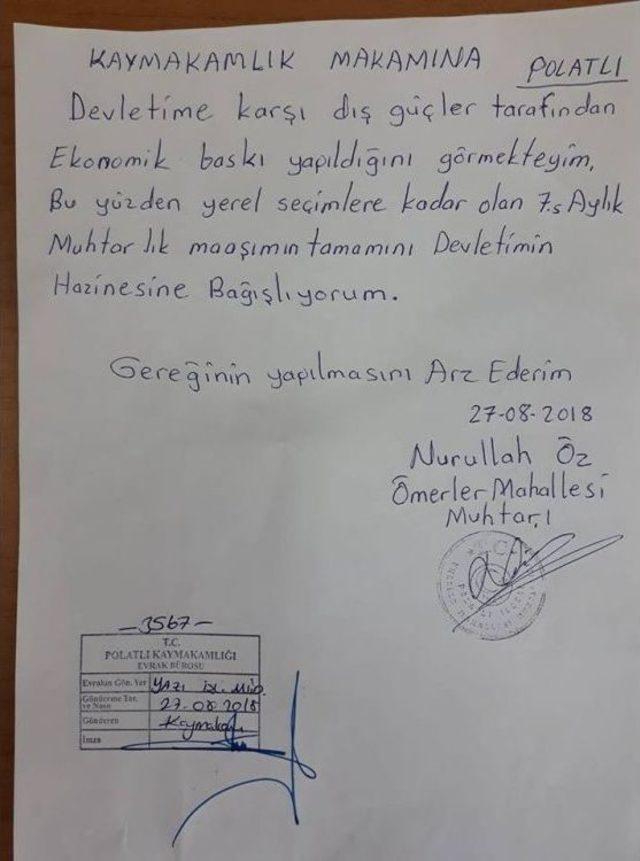 KAYMAKAMLIK MAKAMINA
POLATLI
Devletime karşı dış güçler tarafından
Ekonomik baskı yapıldığını görmekteyim,
Bu yüzden yerel seçimlere kadar olan 7.5 Aylık
Muhtarlık maaşımın tamamını Devletimin
Hazinesine Bağışlıyorum.
Gereğinin yapılmasını Arz Ederim
27-08-2018
Nurullah Öz
Ömerler Mahallesi
Muhtarı
T.C.
-3567-
T.C.
POLATLI KAYMAKAMLIĞI
EVRAK BÜROSU
Evrakın Gön. Yer YAZI İŞL. MÜD.
Gönderme Tar. ve Nosu 27.08.2018
Gönderen Kaymakam
İmza